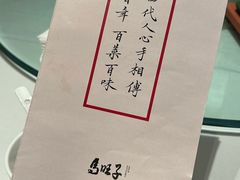 代人心手相傳
百年 百菜百味
馬旺子